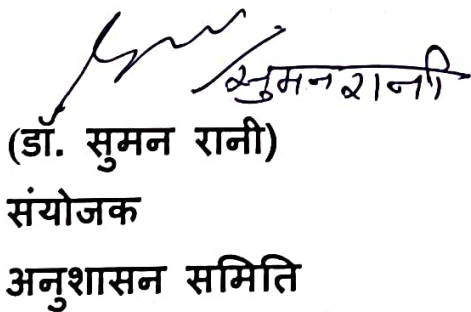 सुमन रानी
(डॉ. सुमन रानी)
संयोजक
अनुशासन समिति